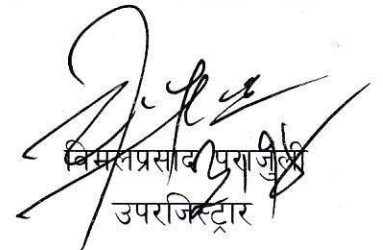 विमलप्रसाद पुराजुली
उपरजिस्ट्रार